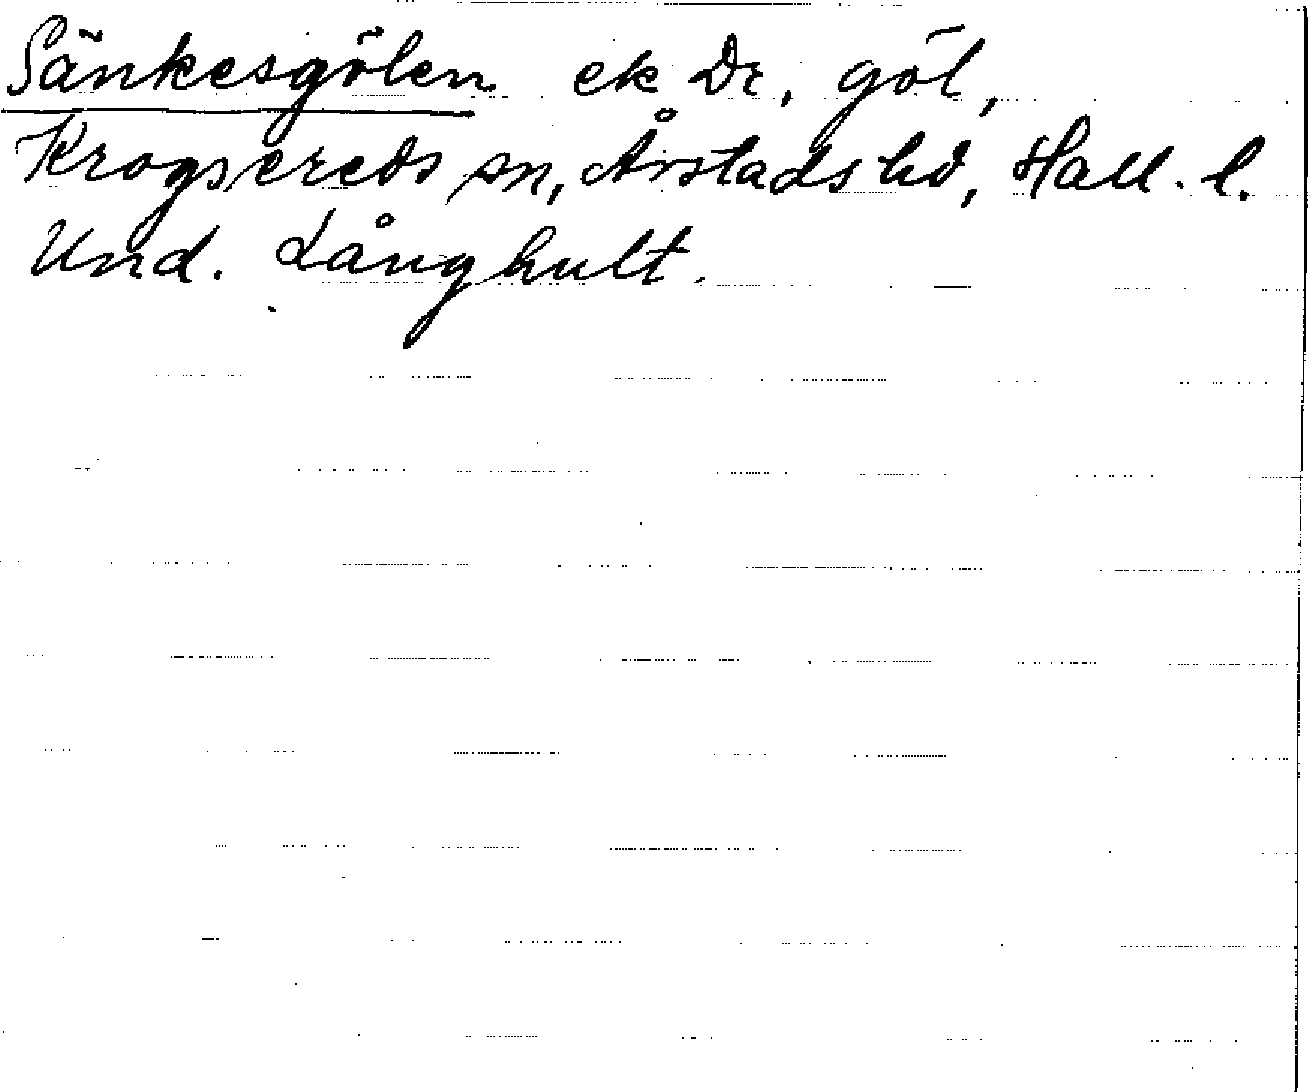 Sänkesgölen ek Dr, göl,
Krogsereds sn, Årstads hd, Hall. l.
Und. Långhult.